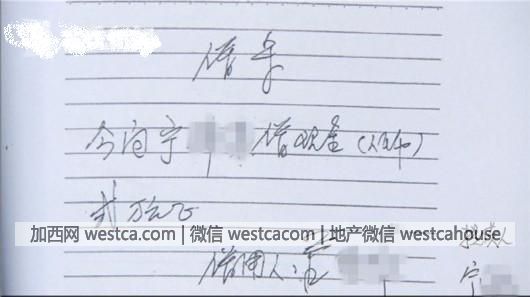 借条
今向宁 借现金（人民币）
贰万元正
加西网 westca.com | 微信 westcacom | 地产微信 westcahouse
借用人：
宁